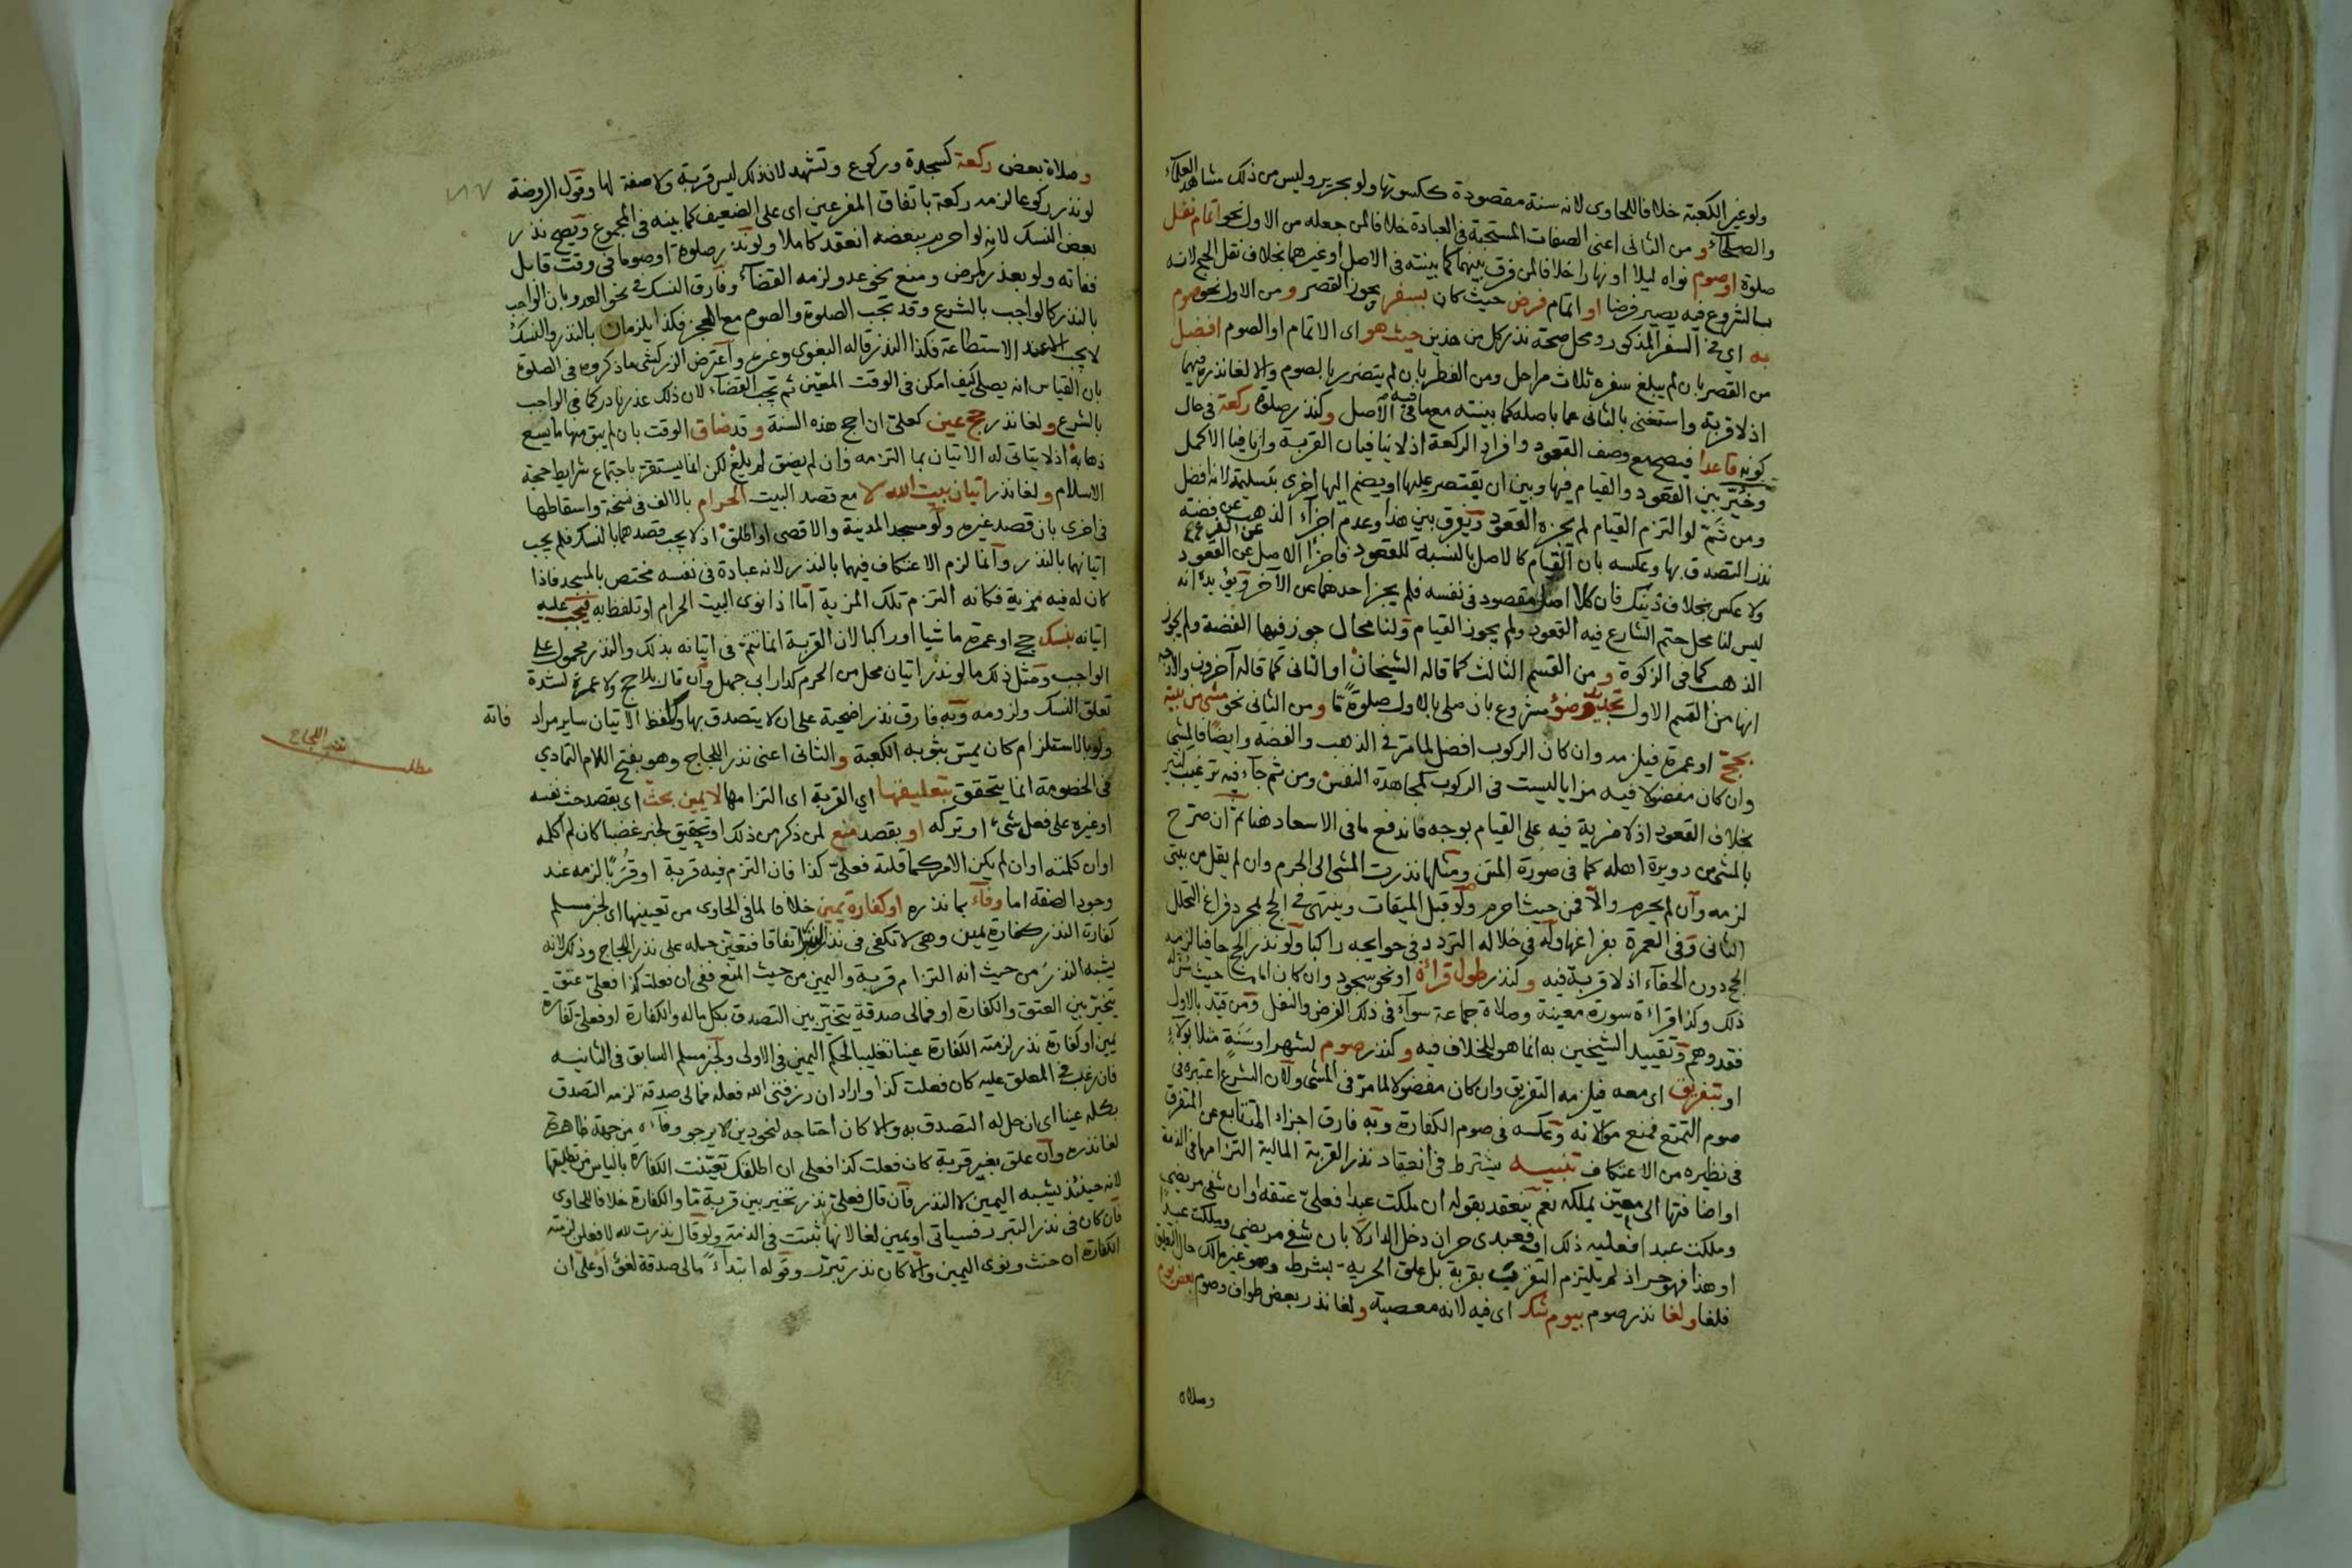 ولو غير الكعبة خلافا للحاوى لانه سنة مقصودة ككسوتها ولو بحرير وليس من ذلك مشاهد العلماء
والصلحاء ومن الثانى اعنى الصفات المستحبة فى العبادة خلافا لمن جعله من الاول نحو اتمام نفل
صلوة او صوم نواه ليلا او نهارا خلافا لمن فرق بينهما كما بينته فى الاصل او غيرهما بخلاف نفل الحج لانه
بالشروع فيه يصير فرضا او اتمام فرض حيث كان بسفر يجوز القصر ومن الاول نحو صوم
به اي فى السفر المذكور ومحل صحة نذر كل من هذين حيث هو اى الاتمام او الصوم افضل
من القصر بان لم يبلغ سفره ثلاث مراحل ومن الفطر بان لم يتضرر بالصوم والا لغا نذره فيهما
اذ لا قربة واستغنى بالثانى عما باصله كما بينته مع ما فيه فى الاصل وكنذر صلوة ركعة فى حال
كونه قاعدا فيصح مع وصف القعود وافراد الركعة اذ لا ينافيان القربة وان نافيا الاكمل
وخير بين القعود والقيام فيها وبين ان يقتصر عليها او يضم اليها اخرى بتسليمة لانه افضل
ومن ثم لو التزم القيام لم يجزه القعود ويفرق بين هذا وعدم اجزاء الذهب عن فضة
نذر التصدق بها وعكسه بان القيام كالاصل بالنسبة للقعود فاجزا الاصل عن القعود عن الفرع
ولا عكس بخلاف ذينك فان كلا اصل مقصود فى نفسه فلم يجز احدهما عن الآخر ويؤيده انه
ليس لنا محل حتم الشارع فيه القعود ولم يجوز القيام ولنا محال جوز فيها الفضة ولم يجوز
الذهب كما فى الزكوة ومن القسم الثالث كما قاله الشيخان او الثانى كما قاله آخرون والاوجه
انها من القسم الاول تجديد وضؤ مشروع بان صلى بالاول صلوة ما ومن الثانى نحو مشى من بيته
بحج او عمرة فيلزمه وان كان الركوب افضل لما مر فى الذهب والفضة وايضا فالمشى
وان كان مفضولا فيه مزايا ليست فى الركوب لمجاهدة النفس ومن ثم جاء فيه ترغيب كثير
بخلاف القعود اذ لا مزية فيه على القيام بوجه فاندفع ما فى الاسعاد هنا ثم ان صرح
بالمشى من دويرة اهله كما فى صورة المتن ومثلها نذرت المشى الى الحرم وان لم يقل من بيتى
لزمه وان لم يحرم والا فمن حيث احرم ولو قبل الميقات وينتهى فى الحج بمجرد فراغ التحلل
الثانى وفى العمرة بفراغها وله فى خلاله التردد فى حوايجه راكبا ولو نذر الحج حافيا لزمه
الحج دون الحفاء اذ لا قربة فيه وكنذر طول قراءة او نحو سجود وان كان اماما حيث سن له
ذلك وكذا قراءة سورة معينة وصلاة جماعة سواء فى ذلك الفرض والنفل ومن قيد بالاول
فقد وهم وتقييد الشيخين به انما هو للخلاف فيه وكنذر صوم لشهر او سنة مثلا بولاء
او بتفريق اى معه فيلزمه التفريق وان كان مفضولا لما مر فى المشى ولان الشرع اعتبره فى
صوم التمتع فمنع موالاته وعكسه فى صوم الكفارة وبه فارق اجزاء المتتابع عن المتفرق
فى نظيره من الاعتكاف تنبيه يشترط فى انعقاد نذر القربة المالية التزامها فى الذمة
او اضافتها الى معين يملكه نعم ينعقد بقوله ان ملكت عبدا فعلى عتقه او ان شفى مريضى
وملكت عبدا فعليه ذلك او فعبدى حر ان دخل الدار لا بان شفى مريضى وملكت عبدا
او هذا فهو حر اذ لم يلتزم التقرب بقربة بل علق الحرية بشرط وهو غير مالك حال التعليق
فلغا ولغا نذر صوم بيوم شك اى فيه لانه معصية ولغا نذر بعض طواف وصوم بعض يوم
وصلاة
وصلاة بعض ركعة كسجدة وركوع وتشهد لان ذلك ليس قربة ولا صفة لها وقول الروضة
١٨٧
لو نذر ركوعا لزمه ركعة باتفاق المفرعين اى على الضعيف كما بينه فى المجموع ويصح نذر
بعض النسك لانه لو احرم ببعضه انعقد كاملا ولو نذر صلوة او صوما فى وقت قابل
ففاته ولو بعذر كمرض ومنع نحو عدو لزمه القضاء وفارق النسك فى نحو العدو بان الواجب
بالنذر كالواجب بالشرع وقد تجب الصلوة والصوم مع العجز فكذا يلزمان بالنذر والنسك
لا يجب الا عند الاستطاعة فكذا النذر قاله البغوى وغيره واعترض الزركشى ما ذكروه فى الصلوة
بان القياس انه يصلى كيف امكن فى الوقت المعين ثم يجب القضاء لان ذلك عذر نادر كما فى الواجب
بالشرع ولغا نذر حج عين كعلى ان احج هذه السنة وقد ضاق الوقت بان لم يبق منها ما يسع
ذهابه اذ لا يتاتى له الاتيان بما التزمه وان لم يضق لم يلغ لكن انما يستقر باجتماع شرايط حجة
الاسلام ولغا نذر اتيان بيت الله لا مع قصد البيت الحرام بالالف فى نسخة واسقاطها
فى اخرى بان قصد غيره ولو مسجد المدينة والاقصى او اطلق اذ لا يجب قصدهما بالنسك فلم يجب
اتيانهما بالنذر وانما لزم الاعتكاف فيهما بالنذر لانه عبادة فى نفسه مختص بالمسجد فاذا
كان له فيه مزية فكانه التزم تلك المزية اما اذا نوى البيت الحرام او تلفظ به فيجب عليه
اتيانه بنسك حج او عمرة ماشيا او راكبا لان القربة انما تتم فى اتيانه بذلك والنذر محمول على
الواجب ومثل ذلك ما لو نذر اتيان محل من الحرم كدار ابى جهل وان قال بلا حج ولا عمرة لشدة
تعلق النسك ولزومه وبه فارق نذر اضحية على ان لا يتصدق بها وكلفظ الاتيان ساير مراد فاته
ولو بالاستلزام كان يمس بثوبه الكعبة والثانى اعنى نذر اللجاج وهو بفتح اللام التمادي
مطلب نذر اللجاج
فى الخصومة انما يتحقق بتعليقها اي القربة اى التزامها لا يمين بحث اى بقصد حث نفسه
او غيره على فعل شىء او تركه او بقصد منع لمن ذكر من ذلك او تحقيق لخبر غضبا كان لم اكلمه
او ان كلمته او ان لم يكن الامر كما قلته فعلى كذا فان التزم فيه قربة او قربا لزمه عند
وجود الصفة اما وفاء بما نذره او كفارة يمين خلافا لما فى الحاوى من تعيينها اى لخبر مسلم
كفارة النذر كفارة يمين وهى لا تكفى فى نذر التبرر اتفاقا فتعين حمله على نذر اللجاج وذلك لانه
يشبه النذر من حيث انه التزام قربة واليمين من حيث المنع ففى ان فعلت كذا فعلى عتق
يتخير بين العتق والكفارة او فمالى صدقة يتخير بين التصدق بكل ماله والكفارة او فعلى كفارة
يمين او كفارة نذر لزمته الكفارة عينا تغليبا لحكم اليمين فى الاولى ولخبر مسلم السابق فى الثانية
فان رغب فى المعلق عليه كان فعلت كذا واراد ان رزقنى الله فعله فمالى صدقة لزمه التصدق
بكله عينا اى ان حل له التصدق به والا كان احتاجه لنحو دين لا يرجو وفاءه من جهة ظاهرة
لغا نذره وان علق بغير قربة كان فعلت كذا فعلى ان اطلقك تعينت الكفارة بالياس من تطليقها
لانه حينئذ يشبه اليمين لا النذر فان قال فعلى نذر تخير بين قربة ما والكفارة خلافا للحاوى
فان كان فى نذر التبرر فسياتى او يمين لغا لانها ثبتت فى الذمة ولو قال نذرت لله لافعلن لزمته
الكفارة ان حنث ونوى اليمين والا كان نذر تبرر وقوله ابتداء مالى صدقة لغو او على ان